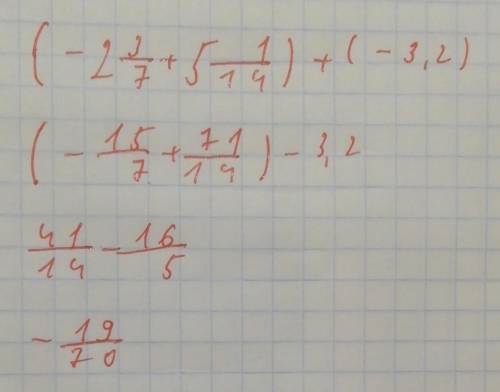 (-2 3/7 + 5 1/14) + (-3,2)
(-15/7 + 71/14) - 3,2
41/14 - 16/5
-19/70